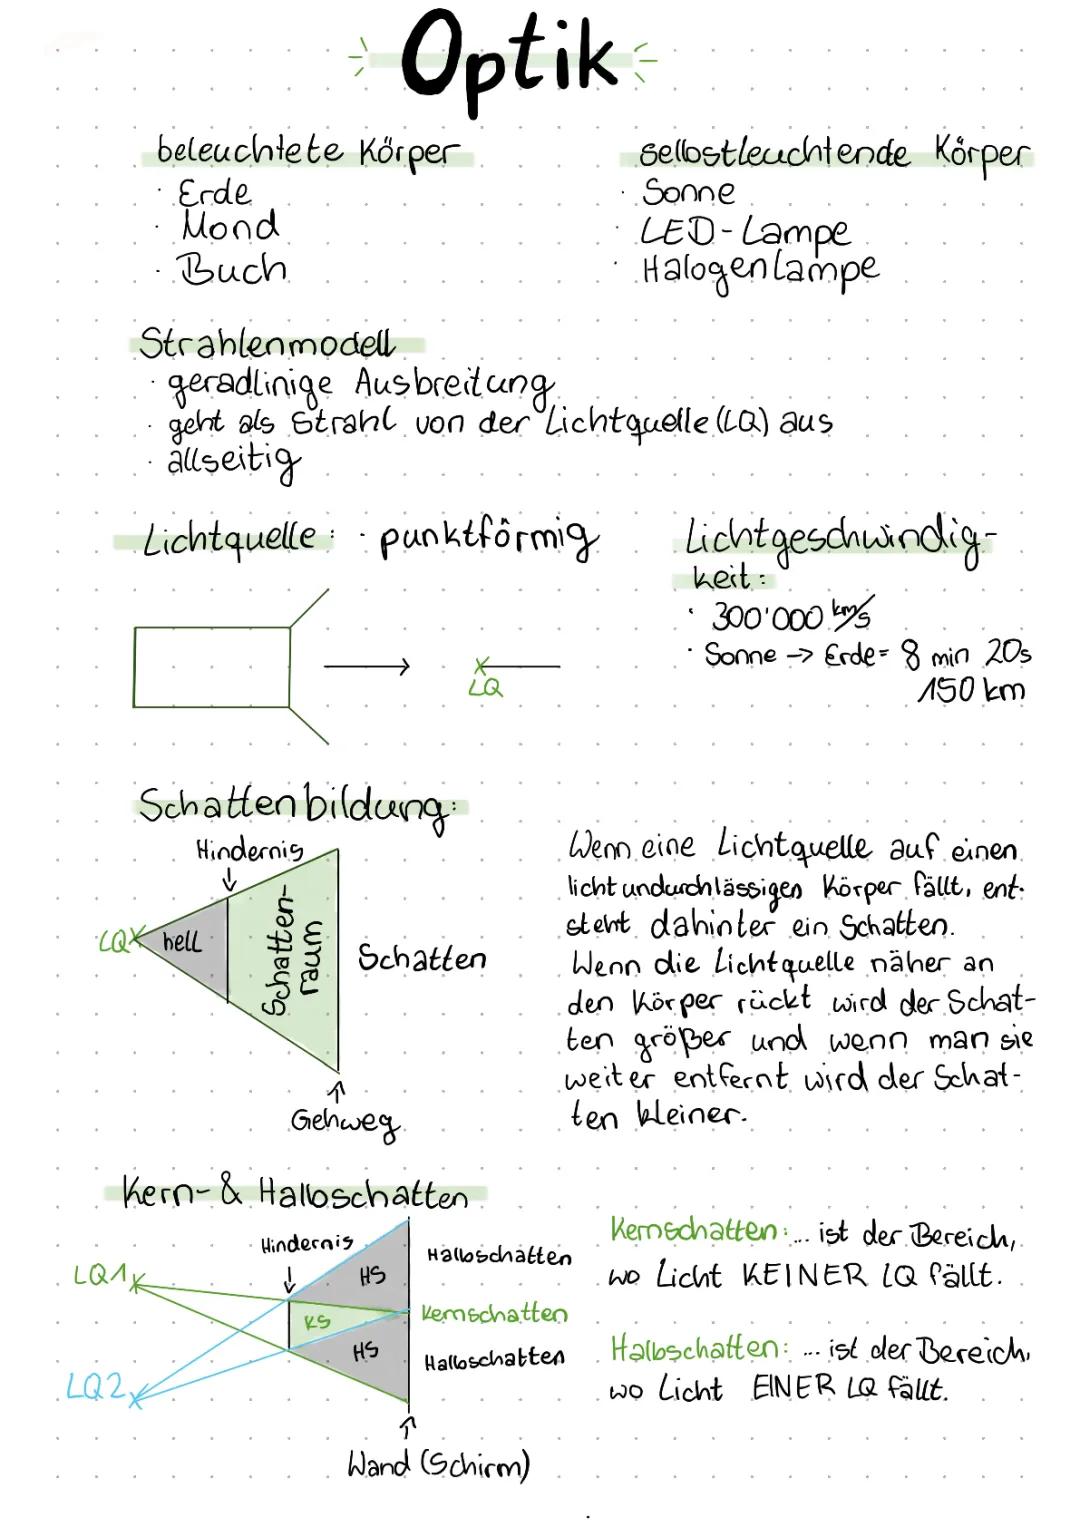 Optik
beleuchtete Körper
· Erde
· Mond
· Buch
selbstleuchtende Körper
· Sonne
· LED-Lampe
· Halogenlampe
Strahlenmodell
· geradlinige Ausbreitung
· geht als Strahl von der Lichtquelle (LQ) aus
· allseitig
Lichtquelle: · punktförmig
LQ
Lichtgeschwindig-
keit:
· 300'000 km/s
· Sonne → Erde = 8 min 20s
150 km
Schattenbildung:
Hindernis
LQ
hell
Schatten-
raum
Schatten
Gehweg
Wenn eine Lichtquelle auf einen
lichtundurchlässigen Körper fällt, ent-
steht dahinter ein Schatten.
Wenn die Lichtquelle näher an
den Körper rückt wird der Schat-
ten größer und wenn man sie
weiter entfernt wird der Schat-
ten kleiner.
Kern- & Halbschatten
Hindernis
LQ1
LQ2
HS
KS
HS
Halbschatten
Kernschatten
Halbschatten
Wand (Schirm)
Kernschatten: ... ist der Bereich,
wo Licht KEINER LQ fällt.
Halbschatten: ... ist der Bereich,
wo Licht EINER LQ fällt.